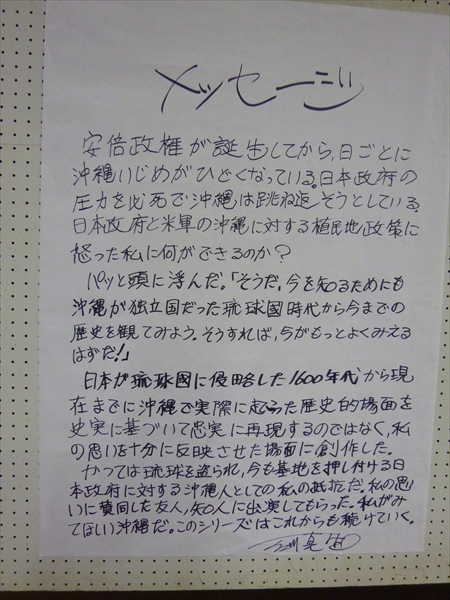 メッセージ
安倍政権が誕生してから、日ごとに
沖縄いじめがひどくなっている。日本政府の
圧力を必死で沖縄は跳ね返そうとしている。
日本政府と米軍の沖縄に対する植民地政策に
怒った私に何ができるのか?
パッと頭に浮んだ。「そうだ。今を知るためにも
沖縄が独立国だった琉球國時代から今までの
歴史を観てみよう。そうすれば、今がもっとよくみえる
はずだ!」
日本が琉球國に侵略した1600年代から現
在までに沖縄で実際に起こった歴史的場面を
史実に基づいて忠実に再現するのではなく、私
の思いを十分に反映させた場面に創作した。
かつては琉球を盗られ、今も基地を押し付ける日
本政府に対する沖縄人としての私の抵抗だ。私の思
いに賛同した友人、知人に出演してもらった。私がみ
てほしい沖縄だ。このシリーズはこれからも続けていく。